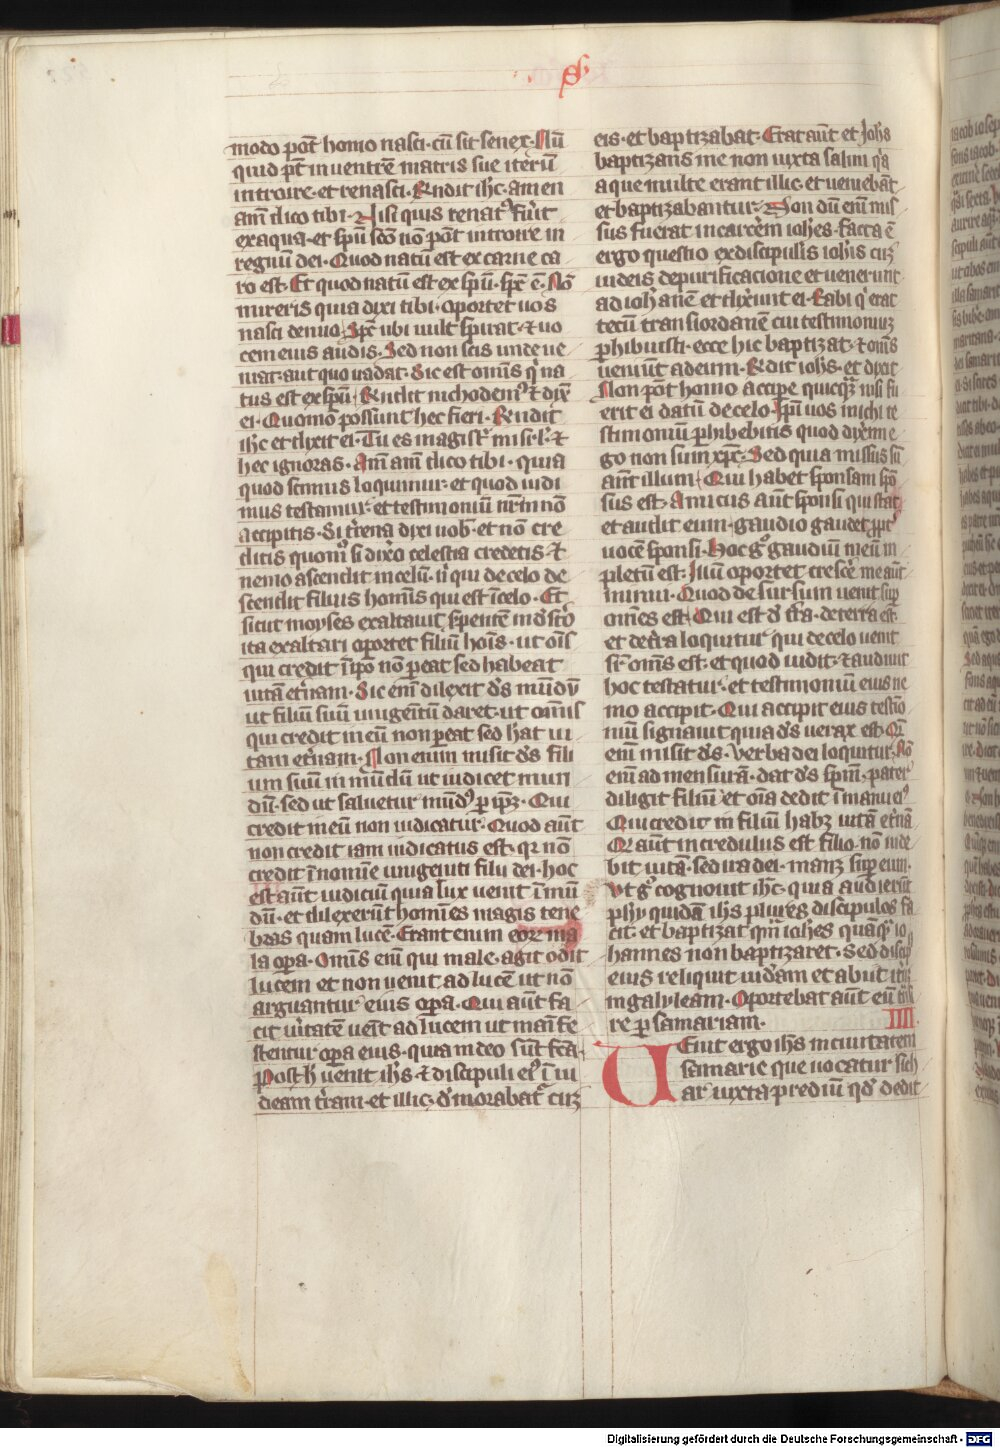 modo pot̄ homo nasci· cū sit senex· Nū
quid pt̄ in ventrē matris sue iterū
introire· et renasci· Rn̄dit ihc̄· amen
am̄ dico tibi· Nisi quis renatꝰ fuīt
ex aqua· et sp̄u sc̄o nō pot̄ introire in
regnū dei· Quod natū est ex carne ca
ro est· Et quod natū est ex sp̄u· sp̄c ē· Nō
mireris quia dixi tibi· oportet uos
nasci denuo· Sp̄c ubi uult spirat· ⁊ uo
cem eius audis· Sed non scis unde ue
niat· aut quo uadat· Sic est omīs q̄ na
tus est ex sp̄u· Rn̄dit nichodemꝰ ⁊ dix̄
ei· Quomō possunt hec fieri· Rn̄dit
ihc̄ et dixit ei· Tu es magist̄ in isr̄l· ⁊
hec ignoras· Am̄ am̄ dico tibi· quia
quod scimus loquimur· et quod uidi
mus testamur· et testimoniū nr̄m nō
accipitis· Si tr̄rena dixi uob̄· et nō cre
ditis quomō si dix̄o celestia credetis· ⁊
nemo ascendit in celū· n̄ qui de celo de
scendit filius hom̄is qui est ī celo· Et
sicut moyses exaltauit s̄pentē in des̄to
ita exaltari oportet filiū hoīs· ut oīs
qui credit ī ip̄o nō p̄eat sed habeat
uitā et̄nam· Sic enī dilexit d̄s mūdū
ut filiū suū unigenitū daret· ut omīs
qui credit in eū non p̄eat sed hat ui
tam et̄nam· Non enim misit d̄s fili
um suū in mūdū ut iudicet mun
dū· sed ut saluetur mūdꝰ p̄ ip̄ꝫ· Qui
credit in eū non iudicatur· Quod aūt
non credit iam iudicatus est· qr̄ nō
credit ī noīe unigeniti filii dei· hoc
est aūt iudiciū quia lux uenit ī mū
dū· et dilexerūt homines magis tene
bras quam lucē· Erant enim eoꝝ ma
la op̄a· Omīs enī qui male agit odit
lucem et non uenit ad lucē ut nō
arguantur eius op̄a· Qui aūt fa
cit u̇itatē uen̄t ad lucem ut manife
stentur op̄a eius· quia in deo sūt fc̄a·
Post h̄ uenit ih̄s ⁊ discipuli eiꝰ ī iu
deam tr̄am· et illic d̄morabat̄ cuꝫ
eis· et baptizabat· Erat aūt et Joh̄s
baptizans in enon iuxta salim q̄a
aque multe erant illic· et ueniebāt
et baptizabantur· Non dū enī mis
sus fuerat in carcerēm ioh̄es· facta ē
ergo questio ex discipulis ioh̄is cuꝫ
iudeis de purificacione et uenerunt
ad ioh̄anē et dix̄unt ei· Rabi q̄ erat
tecū trans iordanē cui testimoniuꝫ
p̄hibuisti· ecce hic baptizat· ⁊ omīs
ueniūt ad eum· Rn̄dit ioh̄s· et dixit
Non pot̄ homo accipe quicq̄ꝫ nisi fu
erit ei datū de celo· Ip̄i uos michi te
stimoniū p̄hibebitis quod dix̄im e
go non sum xp̄c· Sed quia missus sū
ant̄ illum· Qui habet sponsam spō
sus est· Amicus aūt sponsi qui stat
et audit eum· gaudio gaudet ꝓpt̄
uocē sponsi· Hoc gͦ gaudiū meū im
pletū est· Illuū oportet cresc̄e me aūt
minui· Quod de sursum uenit sup̄
omnes est· Qui est d̄ tr̄a· de terra est·
et de tr̄a loquitur qui de celo uenit
sr̄ omīs est· et quod uidit· ⁊ audiuit
hoc testatur· et testimoniū eius ne
mo accipit· Qui accipit eius testīo
niū signauit quia d̄s uerax est· Qm̄
enī misit d̄s· uerba dei loquitur· Nō
enī ad mensurā· dat d̄s sp̄m· pater
diligit filiū et oīa dedit ī manu eiꝰ
Qui credit in filiū habꝫ uitā et̄nā
Qi aūt incredulus est filio· nō uide
bit uitā· sed ira dei· manꝫ super eum·
Ut gͦ cognouit ihc̄· quia audierūt
phȳ quidā ih̄s plures discipulos fa
cit· et baptizat qm̄ ioh̄es quāq̄ꝫ io
hannes non baptizaret· Sed discip̄
eius reliquit iud̄am et abiit it̄ꝫ
in galyleam· Oportebat aūt eū tr̄nsi
re p̄ samariam· IIII·
UEnit ergo ih̄s in ciuitatem
samarie que uocatur sich
ar iuxta prediū qd̄ dedit
Digitalisierung gefördert durch die Deutsche Forschungsgemeinschaft - DFG